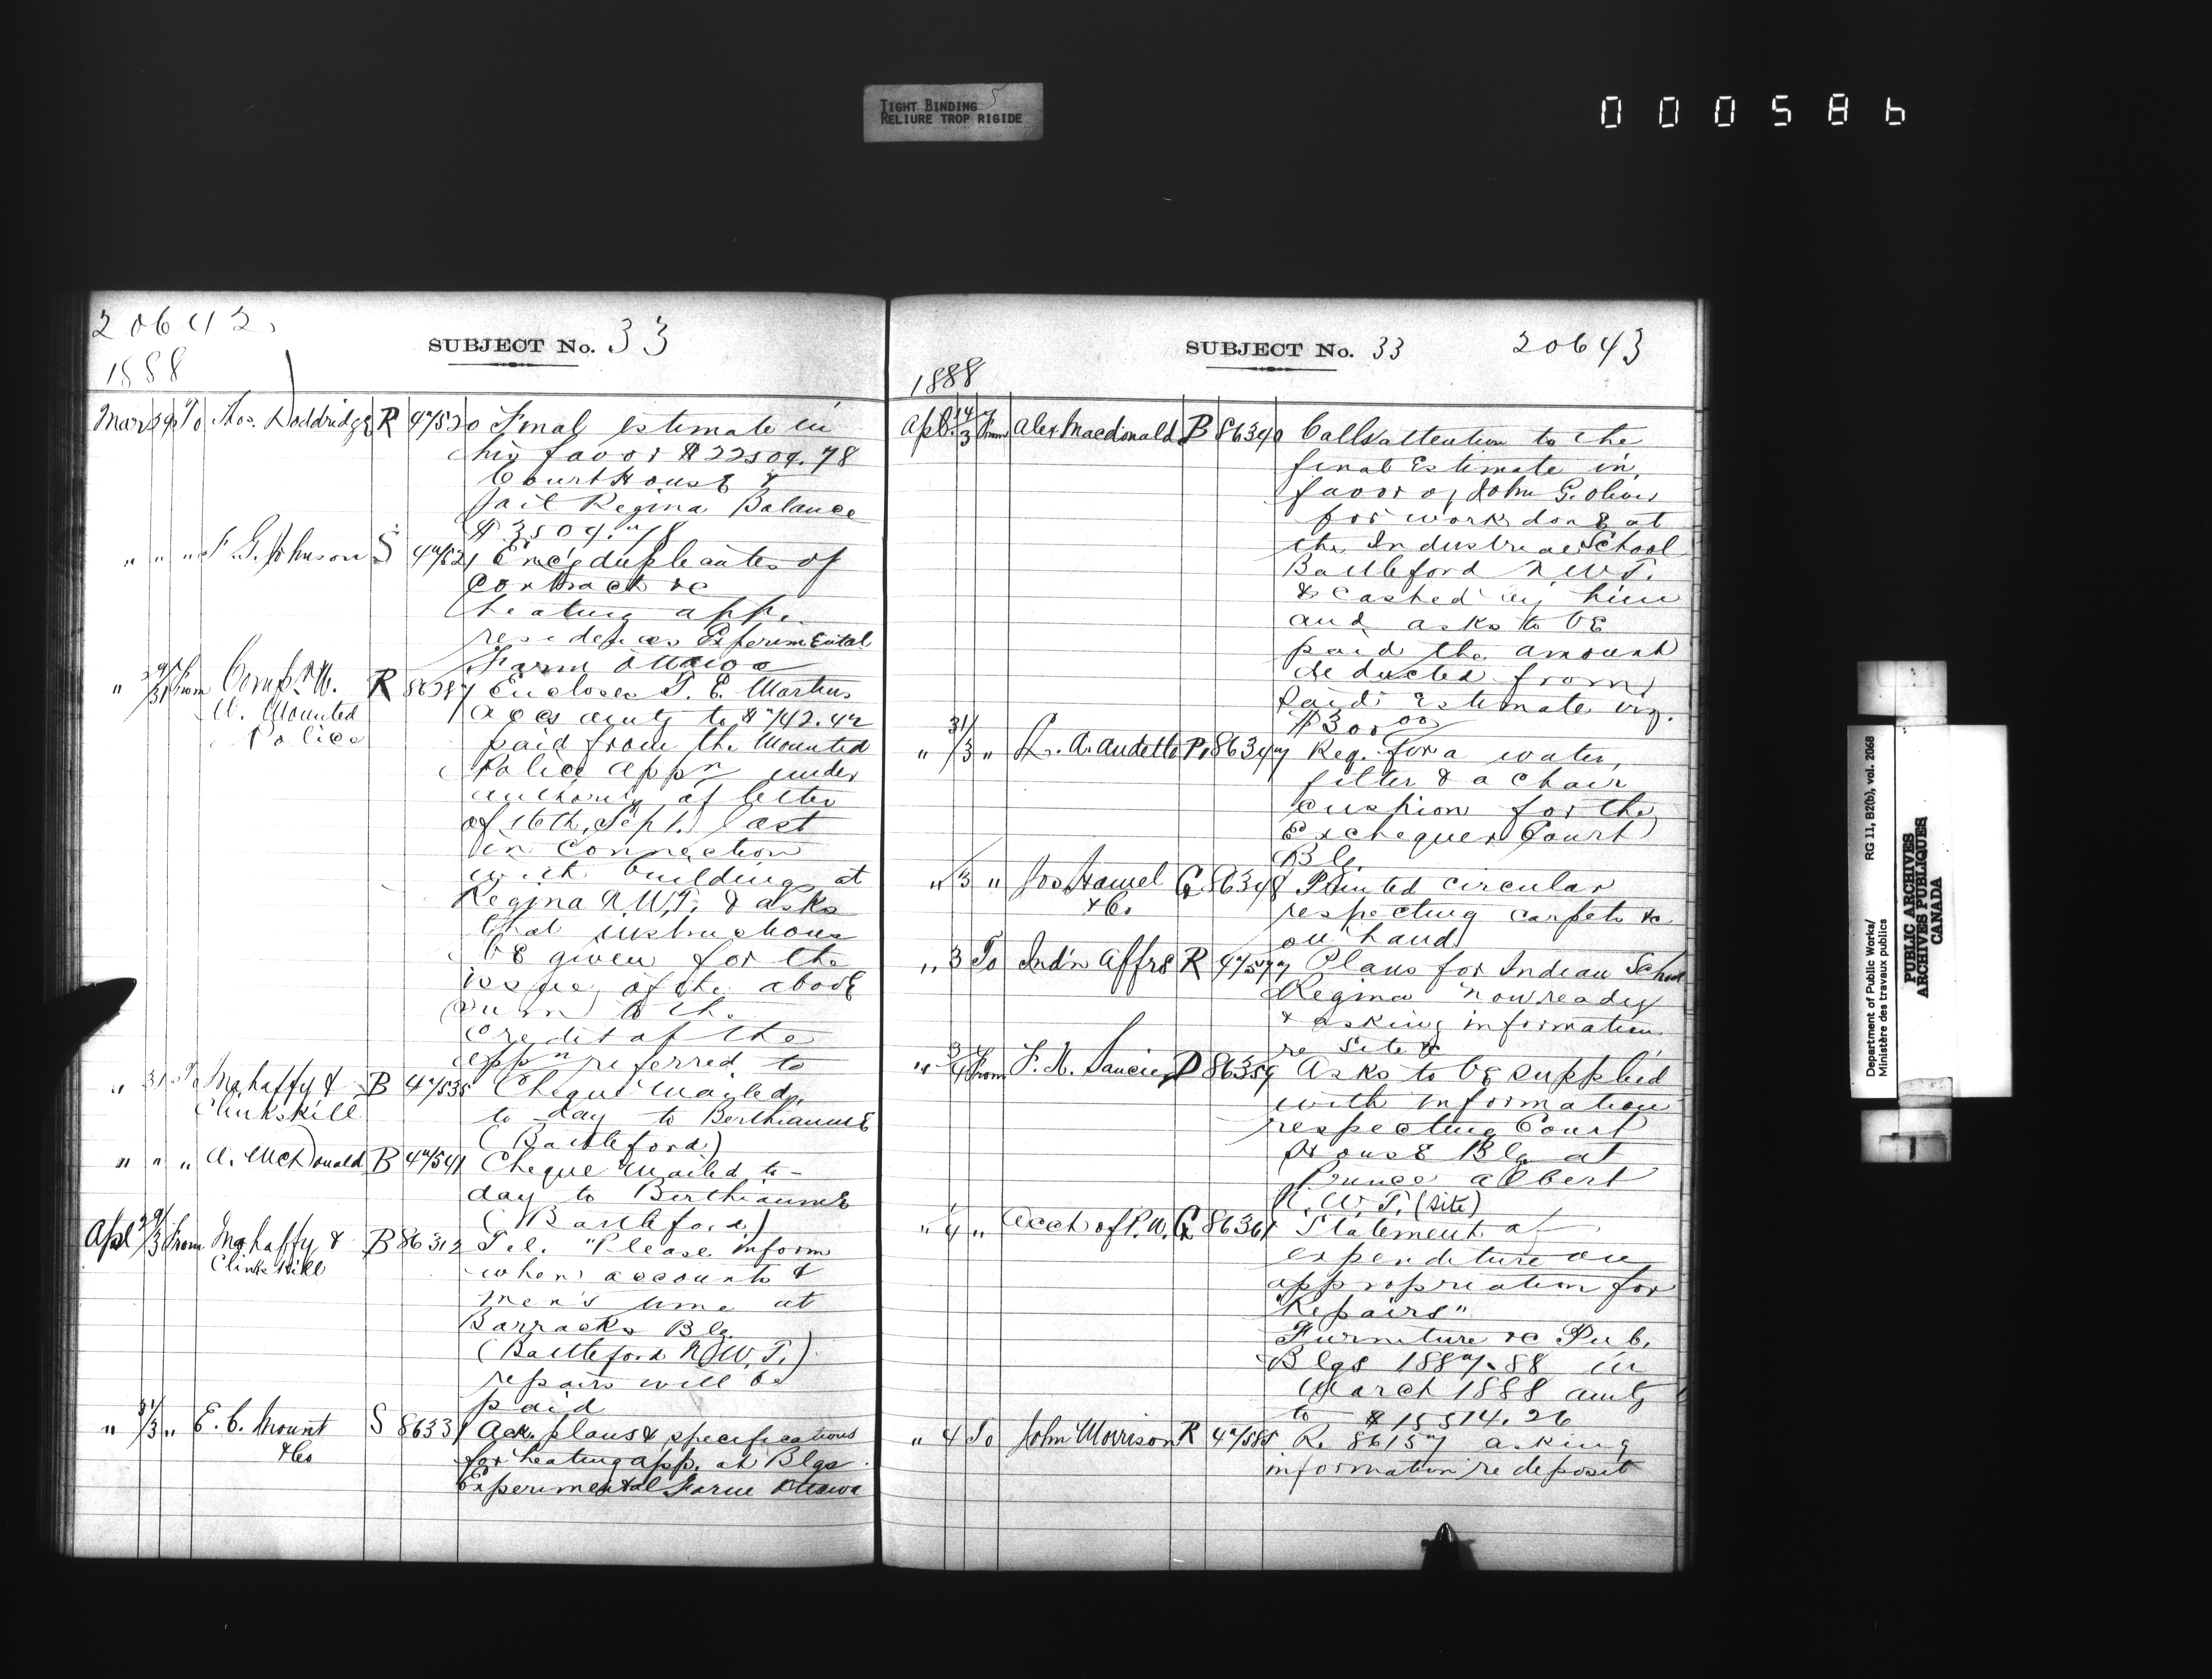 TIGHT BINDING 5
RELIURE TROP RIGIDE
000586
20642
SUBJECT No. 33
1888
Mar 29 To Thos. Doddridge R 47520 Final Estimate in
his favor $22504.78
Court House &
Jail Regina Balance
$3504.78
" " " F. G. Johnson S 47521 Enc'g duplicates of
Contract &c
heating app.
residences Experimental
Farm Ottawa
" 29/31 From Comp. N. R 86287 Encloses T. E. Martins
W. Mounted accs amtg to $742.42
Police paid from the Mounted
Police appn under
authority of letter
of 16th, Sept. last
in connection
with building at
Regina N.W.T. & asks
that instructions
be given for the
issue of the above
sum to the
credit of the
appn referred to
" 31 To Mahaffy & B 47535 Cheque Mailed
Clinkskill to day to Berthiaume
(Battleford)
" " " A. McDonald B 47541 Cheque Mailed to-
day to Berthiaume
(Battleford)
Apl 29/3 From Mahaffy & B 86312 Tel. "Please inform
Clinkskill when accounts &
men's time at
Barracks Blg
(Battleford N.W.T.)
repairs will be
paid
" 31/3 " E. C. Mount S 86331 Ack. plans & specifications
& Co for heating app. at Blgs
Experimental Farm Ottawa
SUBJECT No. 33 20643
1888
Apl. 14/3 From Alex Macdonald B 86340 Calls attention to the
final Estimate in
favor of John G. Oliver
for work done at
the Industrial School
Battleford N.W.T.
& cashed by him
and asks to be
paid the amount
deducted from
said Estimate viz.
$300.00
" 31/3 " L. A. Audette P. 86347 Req. for a water
filter & a chair
cushion for the
Exchequer Court
Blg.
" 3 " Jos Hamel G 86348 Printed circular
& Co. respecting carpets &c
on hand
" 3 To Ind'n Affrs R 47577 Plans for Indian School
Regina now ready
& asking information
re Site &
" 3/4 From F. X. Saucier D 86359 Asks to be supplied
with information
respecting Court
House Blg at
Prince Albert
N.W.T. (site)
" 4 " Acct of P.W. G 86361 Statement of
expenditure on
appropriation for
"Repairs"
Furniture &c Pub.
Blgs 1887-88 in
March 1888 amtg
to $15514.26
" 4 To John Morrison R 47585 R. 86157 asking
information re deposit
Department of Public Works/
Ministère des travaux publics
RG 11, B2(b), vol. 2068
PUBLIC ARCHIVES
ARCHIVES PUBLIQUES
CANADA